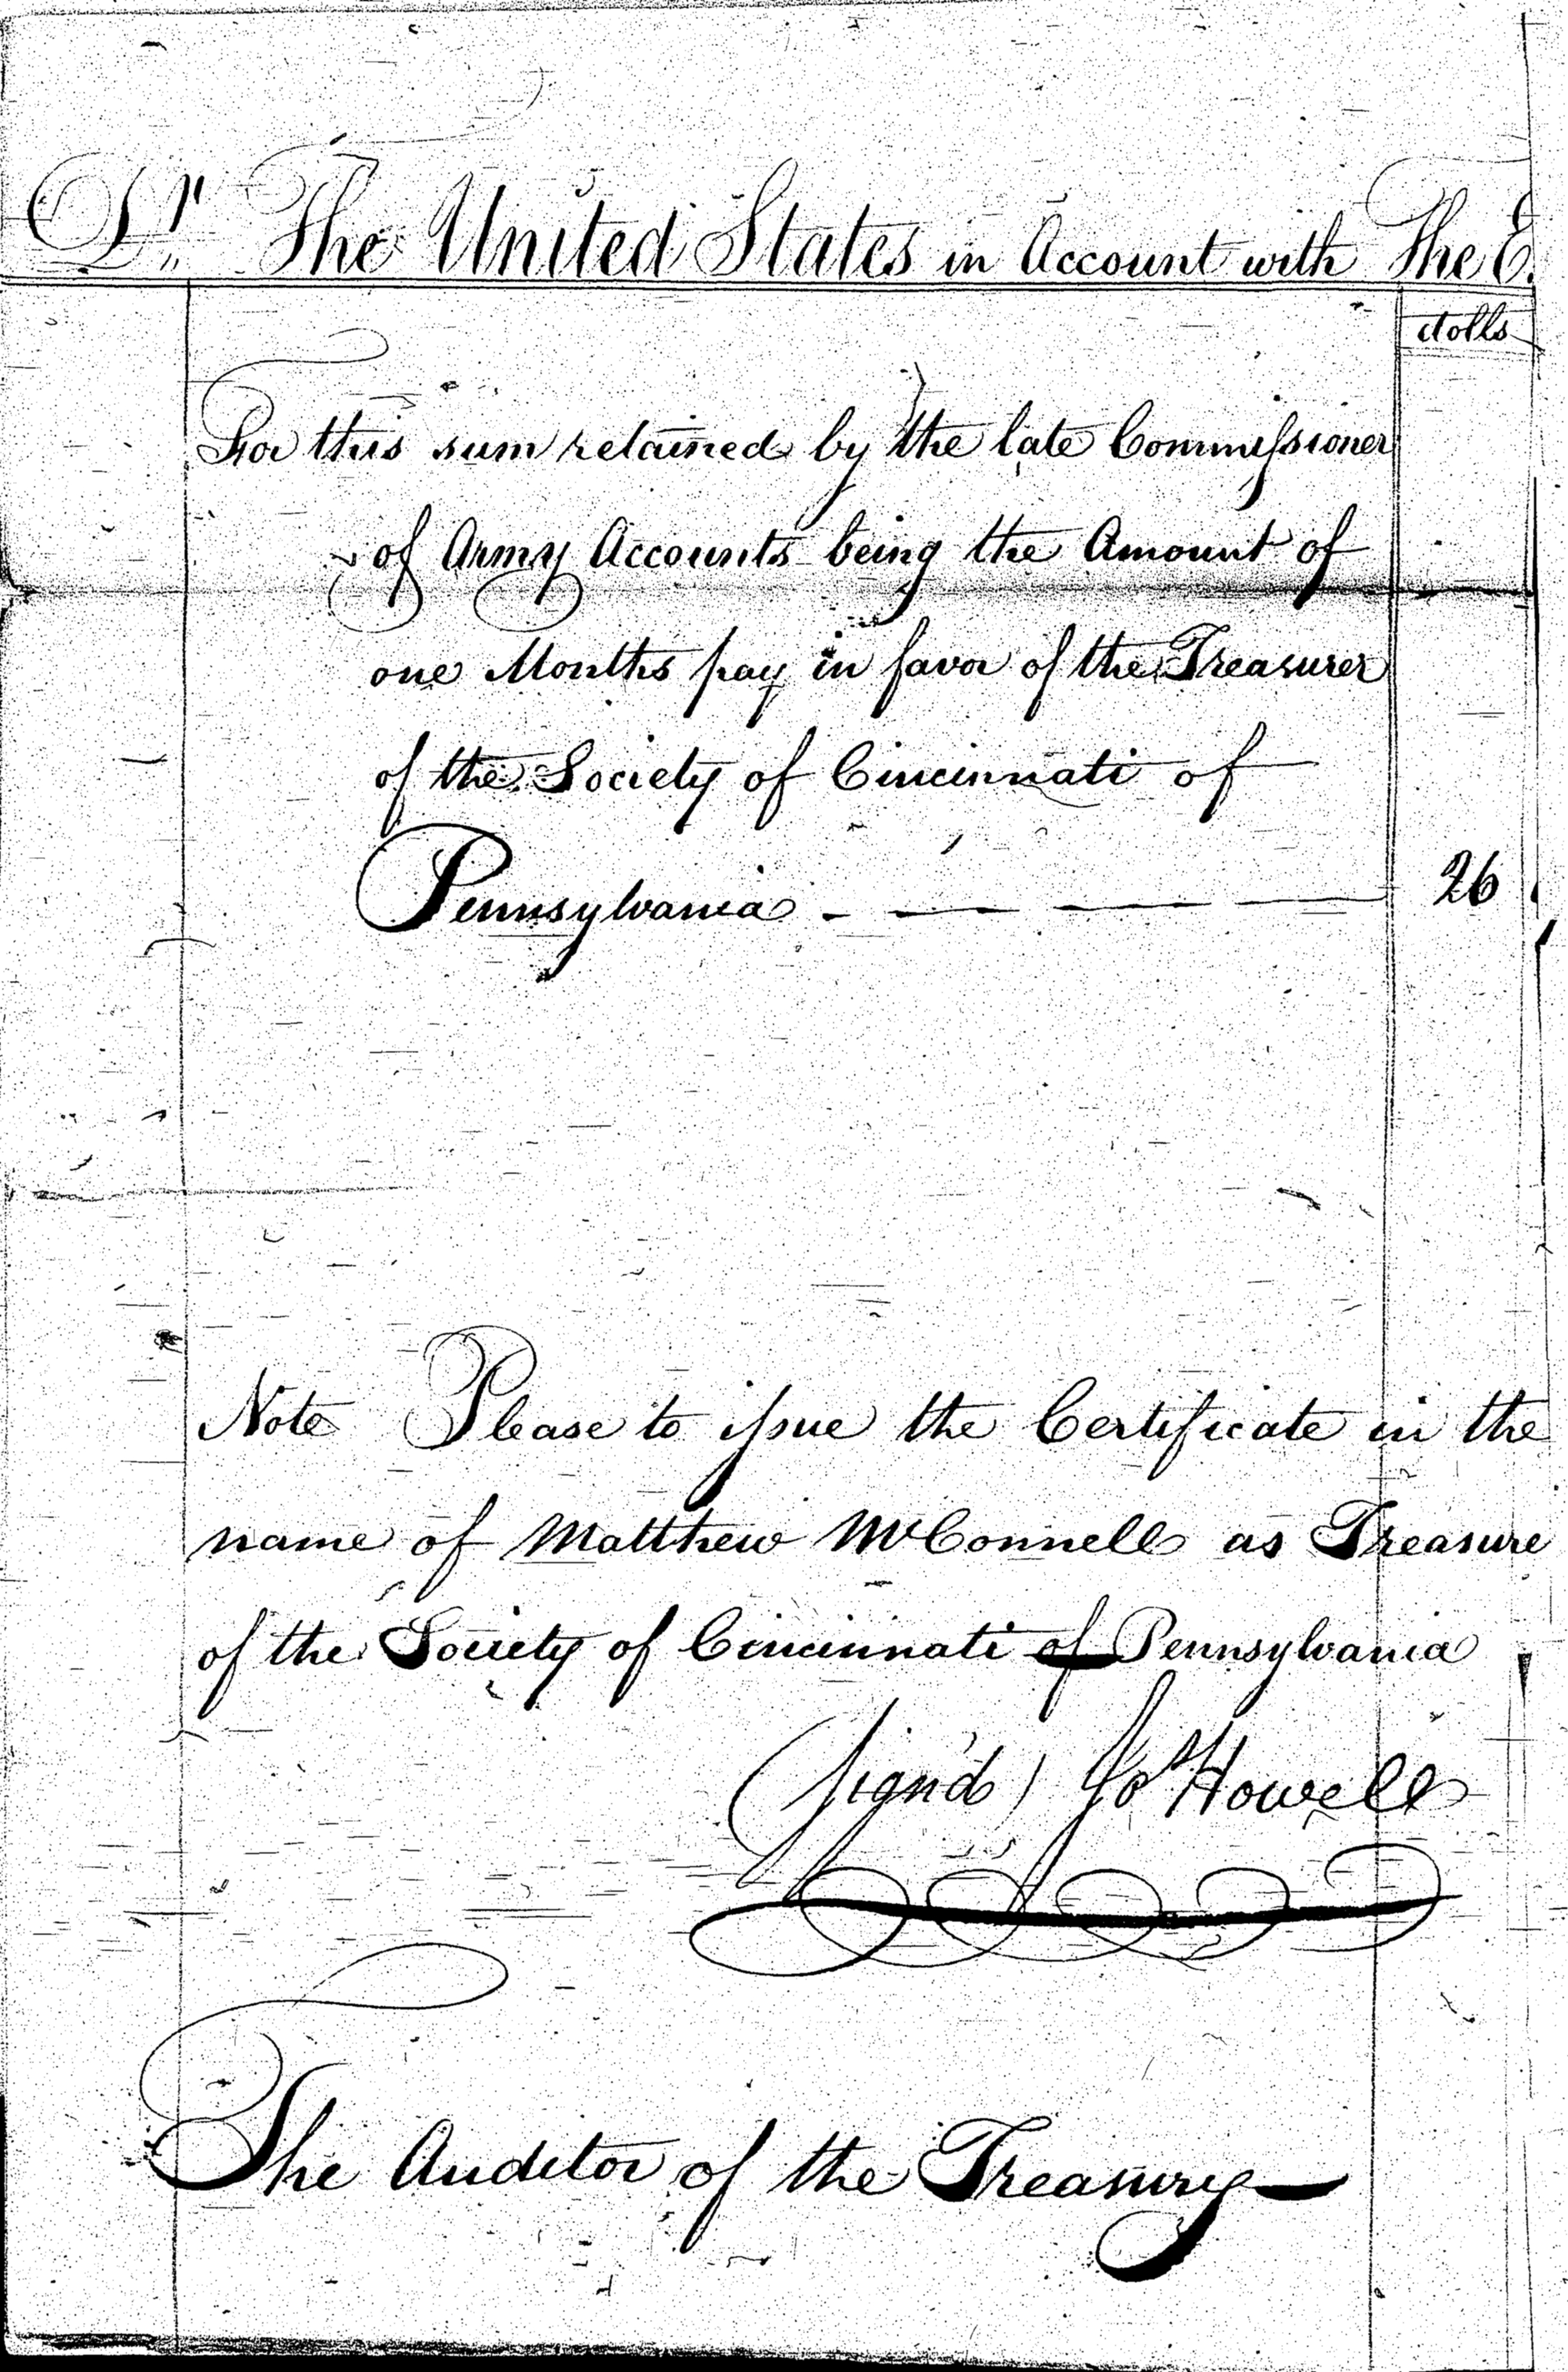 Dr The United States in Account with The E.
dolls
For this sum retained by the late Commissioner
of Army Accounts being the Amount of
one Months pay in favor of the Treasurer
of the Society of Cincinnati of
Pennsylvania 26
Note Please to issue the Certificate in the
name of Matthew McConnell as Treasure
of the Society of Cincinnati of Pennsylvania
(sign'd) Jos Howell
The Auditor of the Treasury